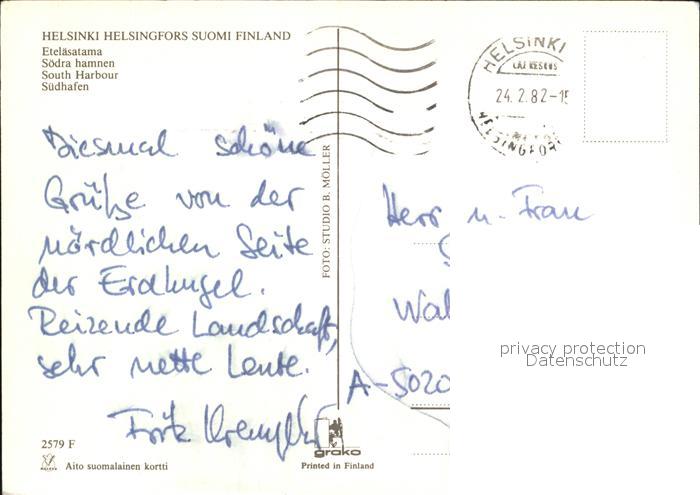 HELSINKI HELSINGFORS SUOMI FINLAND
Eteläsatama
Södra hamnen
South Harbour
Südhafen
HELSINKI
24.2.82-15
HELSINGFORS
Diesmal schöne
Grüße von der
nördlichen Seite
der Erdkugel.
Reizende Landschaft,
sehr nette Leute.
Fritz
FOTO: STUDIO B. MÖLLER
Herr u. Frau
Wal
A-5020
privacy protection
Datenschutz
2579 F
Aito suomalainen kortti
grako
Printed in Finland